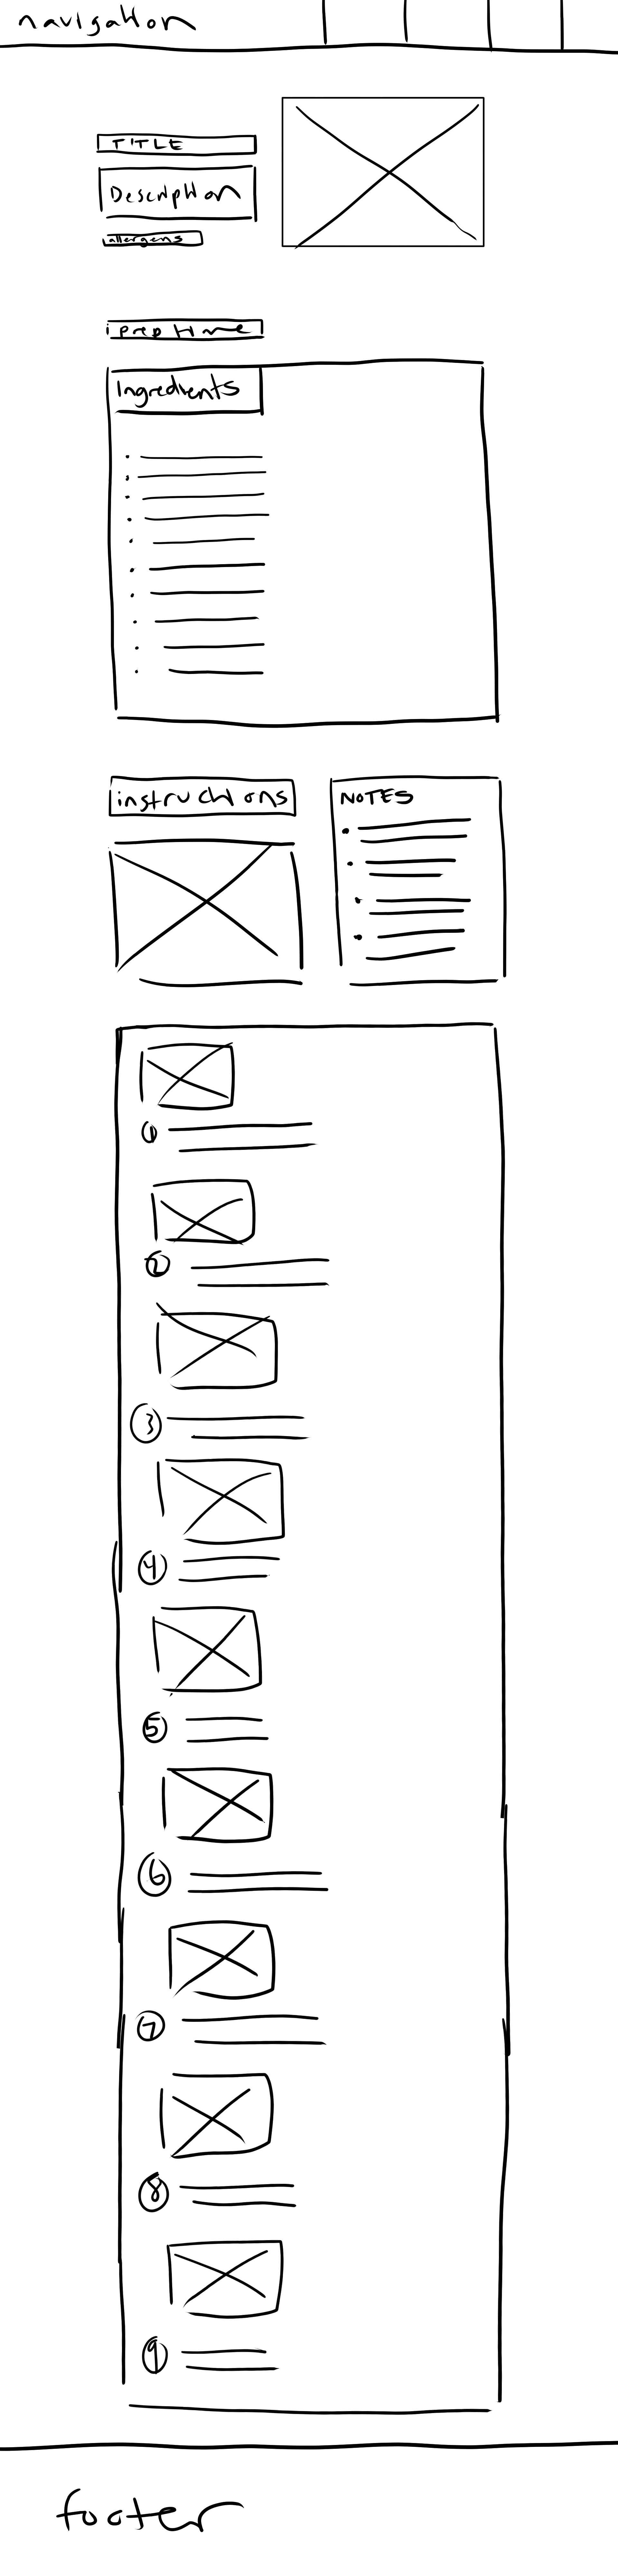 navigation
TITLE
Description
allergens
prep time
Ingredients
instructions
NOTES
1
2
3
4
5
6
7
8
9
footer